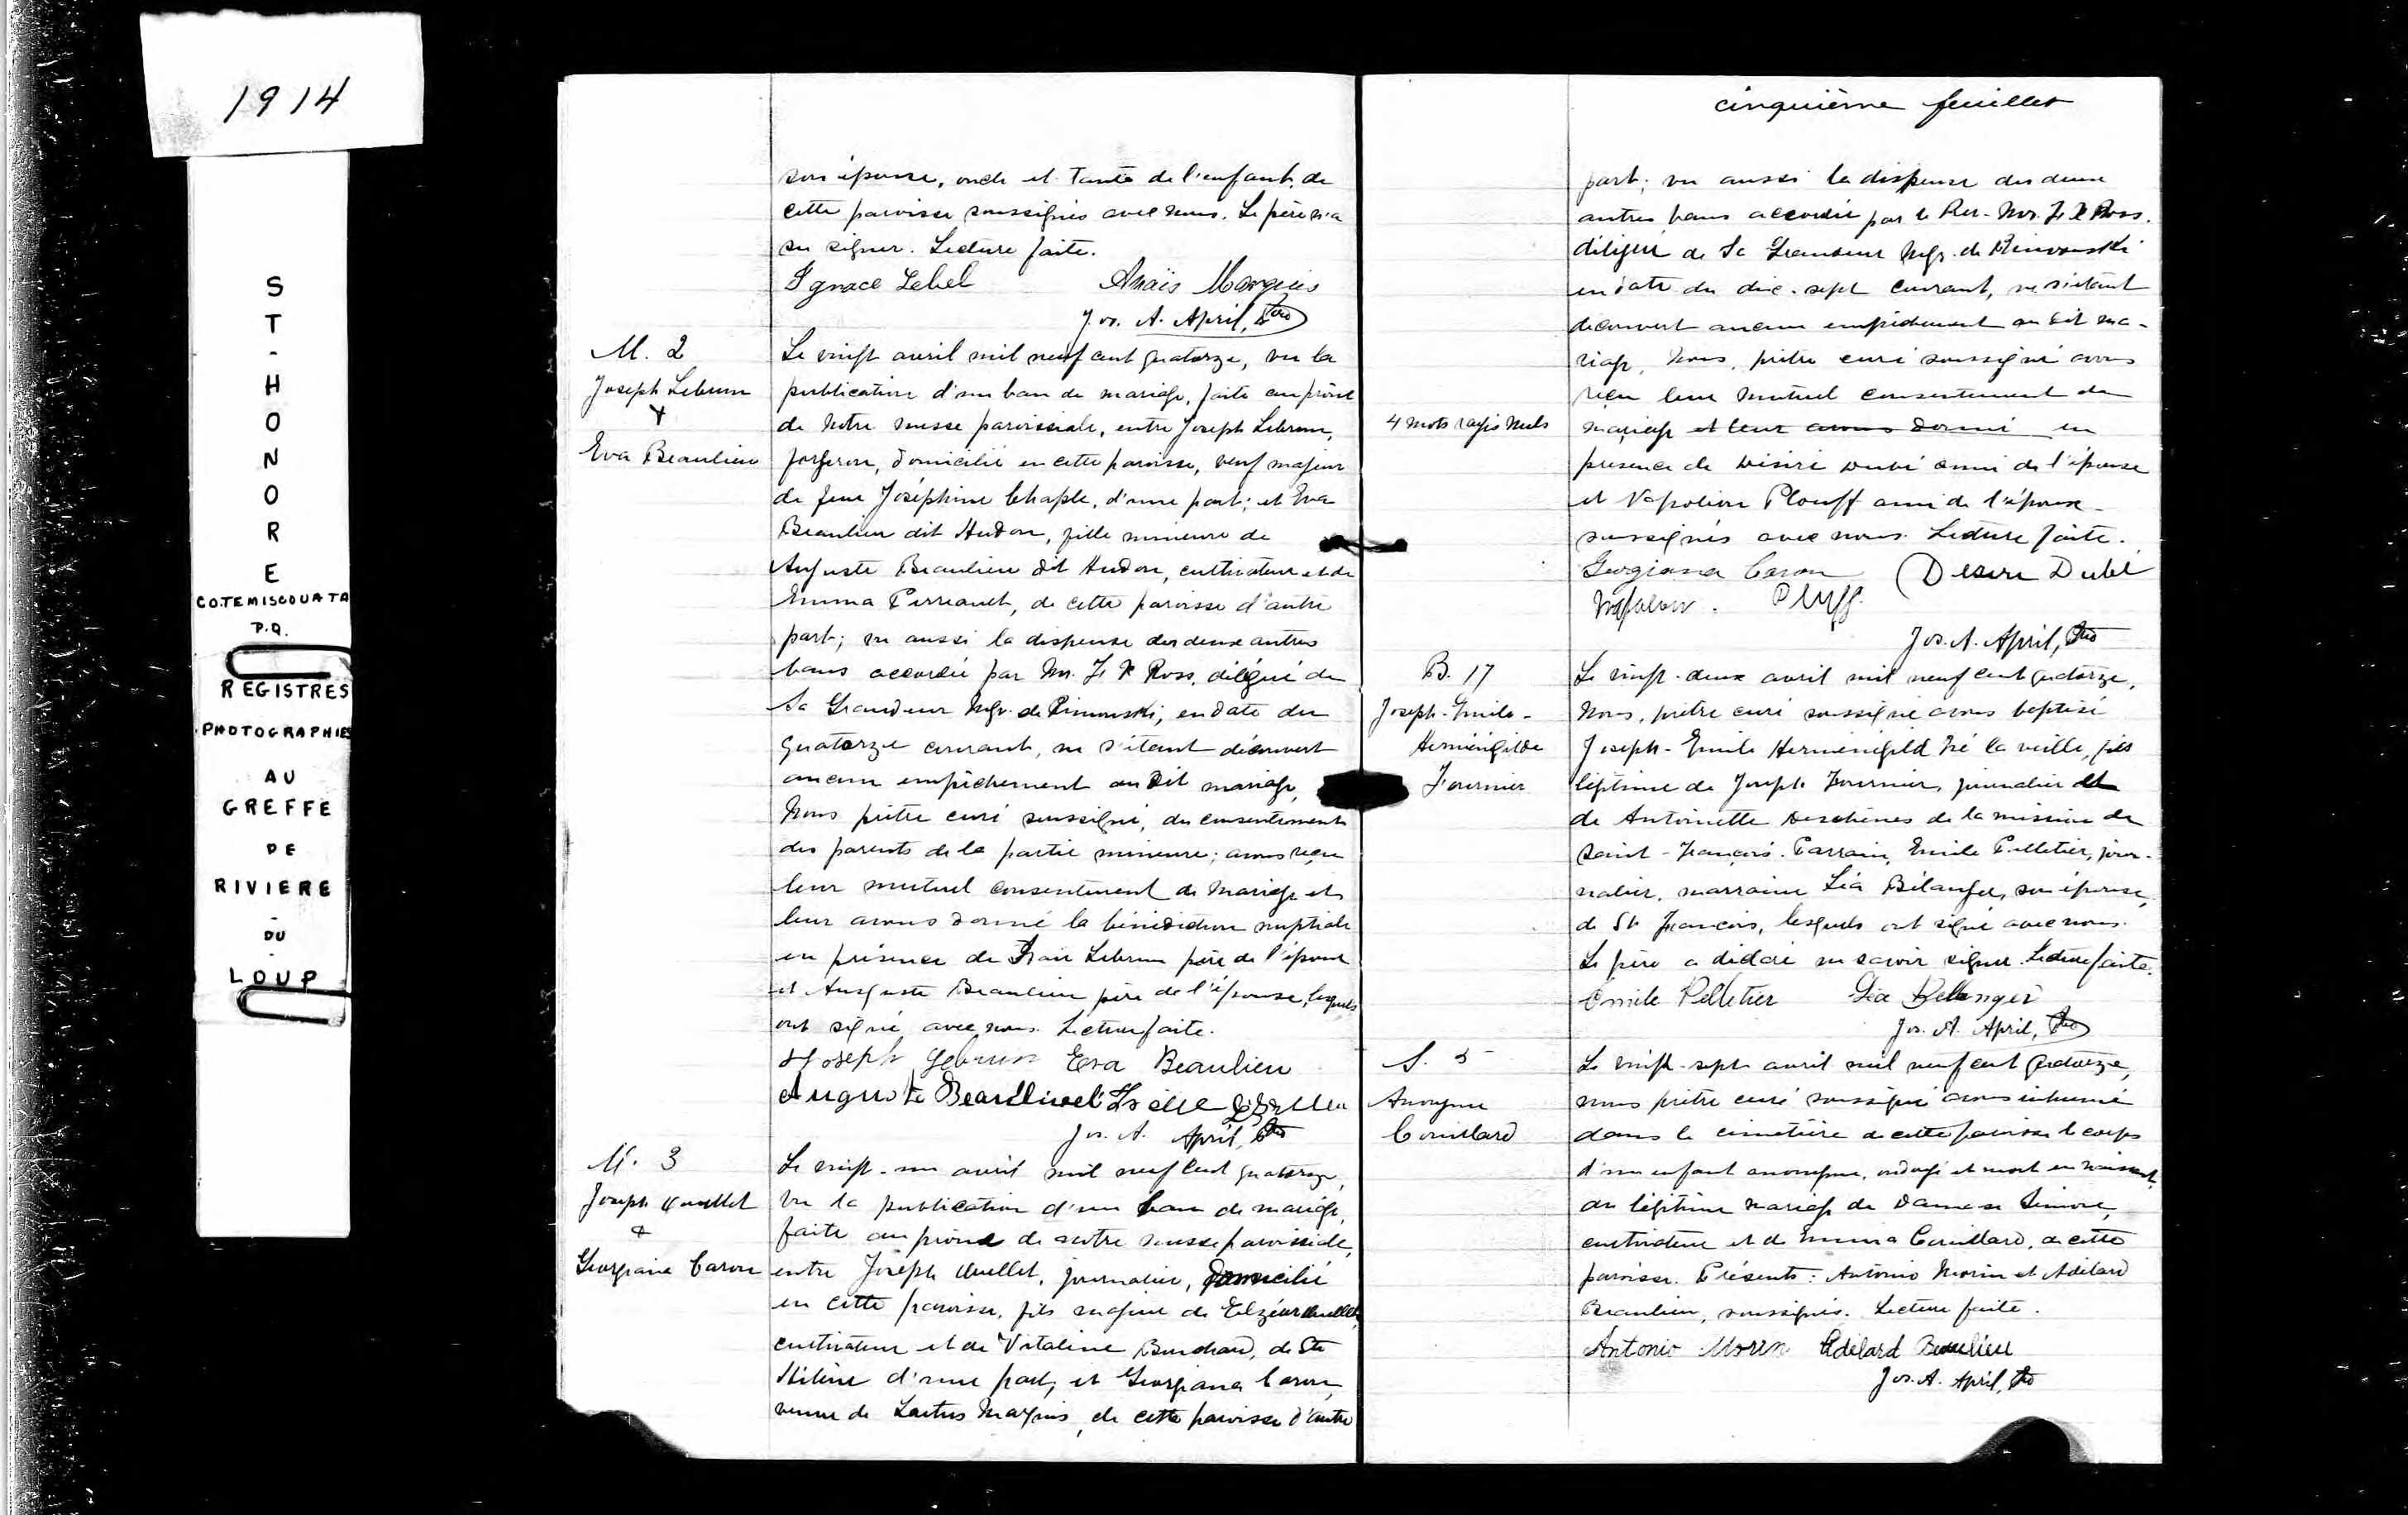 1914
ST-HONORE
CO.TEMISCOUATA
P.Q.
REGISTRES
PHOTOGRAPHIES
AU
GREFFE
DE
RIVIERE
-
DU
-
LOUP
son épouse, oncle et Tante de l'enfant, de
cette paroisse soussignés avec nous. Le père n'a
su signer. Lecture faite.
Ignace Lebel Anaïs Marquis
Jos. A. April, Ptre
M. 2
Joseph Lebrun
&
Eva Beaulieu
Le vingt avril mil neuf cent quatorze, vu la
publication d'un ban de mariage, faite au prône
de notre messe paroissiale, entre Joseph Lebrun,
forgeron, domicilié en cette paroisse, veuf majeur
de feue Joséphine Chaple, d'une part; et Eva
Beaulieu dit Hudon, fille mineure de
Auguste Beaulieu dit Hudon, cultivateur et de
Emma Perreault, de cette paroisse d'autre
part; vu aussi la dispense des deux autres
bans accordée par Mr. Ross, délégué de
Sa Grandeur Mgr. de Rimouski, en date du
quatorze courant, ne s'étant découvert
aucun empêchement au dit mariage,
Nous prêtre curé soussigné, du consentement
des parents de la partie mineure; avons reçu
leur mutuel consentement de mariage et
leur avons donné la bénédiction nuptiale
en présence de Lebrun père de l'époux
et Auguste Beaulieu père de l'épouse, lesquels
ont signé avec nous. Lecture faite.
Joseph Lebrun Eva Beaulieu
Auguste Beaulieu
Jos. A. April, Ptre
M. 3
Joseph Ouellet
&
Georgiana Caron
Le vingt-un avril mil neuf cent quatorze,
vu la publication d'un ban de mariage,
faite au prône de notre messe paroissiale,
entre Joseph Ouellet, journalier, domicilié
en cette paroisse, fils majeur de Elzéar Ouellet,
cultivateur et de Vitaline Bouchard, de Ste
Hélène d'une part, et Georgiana Caron,
veuve de Marquis, de cette paroisse d'autre
cinquième feuillet
part; vu aussi la dispense des deux
autres bans accordée par le Rev. Mr. Ross,
délégué de Sa Grandeur Mgr. de Rimouski
en date du dix-sept courant, ne s'étant
découvert aucun empêchement au dit ma-
riage, Nous, prêtre curé soussigné avons
reçu leur mutuel consentement de
4 mots rayés nuls
mariage et leur avons donné en
présence de Désiré Dubé ami de l'épouse
et Napoléon Plouff ami de l'époux
soussignés avec nous. Lecture faite.
Georgiana Caron Desire Dubé
Napoleon Pluff
Jos. A. April, Ptre
B. 17
Joseph-Emile-
Herménégilde
Fournier
Le vingt-deux avril mil neuf cent quatorze,
Nous, prêtre curé soussigné avons baptisé
Joseph-Emile Herménégild né la veille, fils
légitime de Joseph Fournier, journalier et
de Antoinette Deschênes de la mission de
Saint-François. Parrain, Emile Pelletier, jour-
nalier, marraine Léa Bélanger, son épouse,
de St François, lesquels ont signé avec nous.
Le père a déclaré ne savoir signer. Lecture faite.
Emile Pelletier Léa Belanger
Jos. A. April, Ptre
S. 5
Anonyme
Couillard
Le vingt-sept avril mil neuf cent quatorze,
nous prêtre curé soussigné avons inhumé
dans le cimetière de cette paroisse le corps
d'un enfant anonyme, ondoyé et mort en naissant,
du légitime mariage de Damase Simone,
cultivateur et de Emma Couillard, de cette
paroisse. Présents: Antonio Morin et Adélard
Beaulieu, soussignés. Lecture faite.
Antonio Morin Adélard Beaulieu
Jos. A. April, Ptre